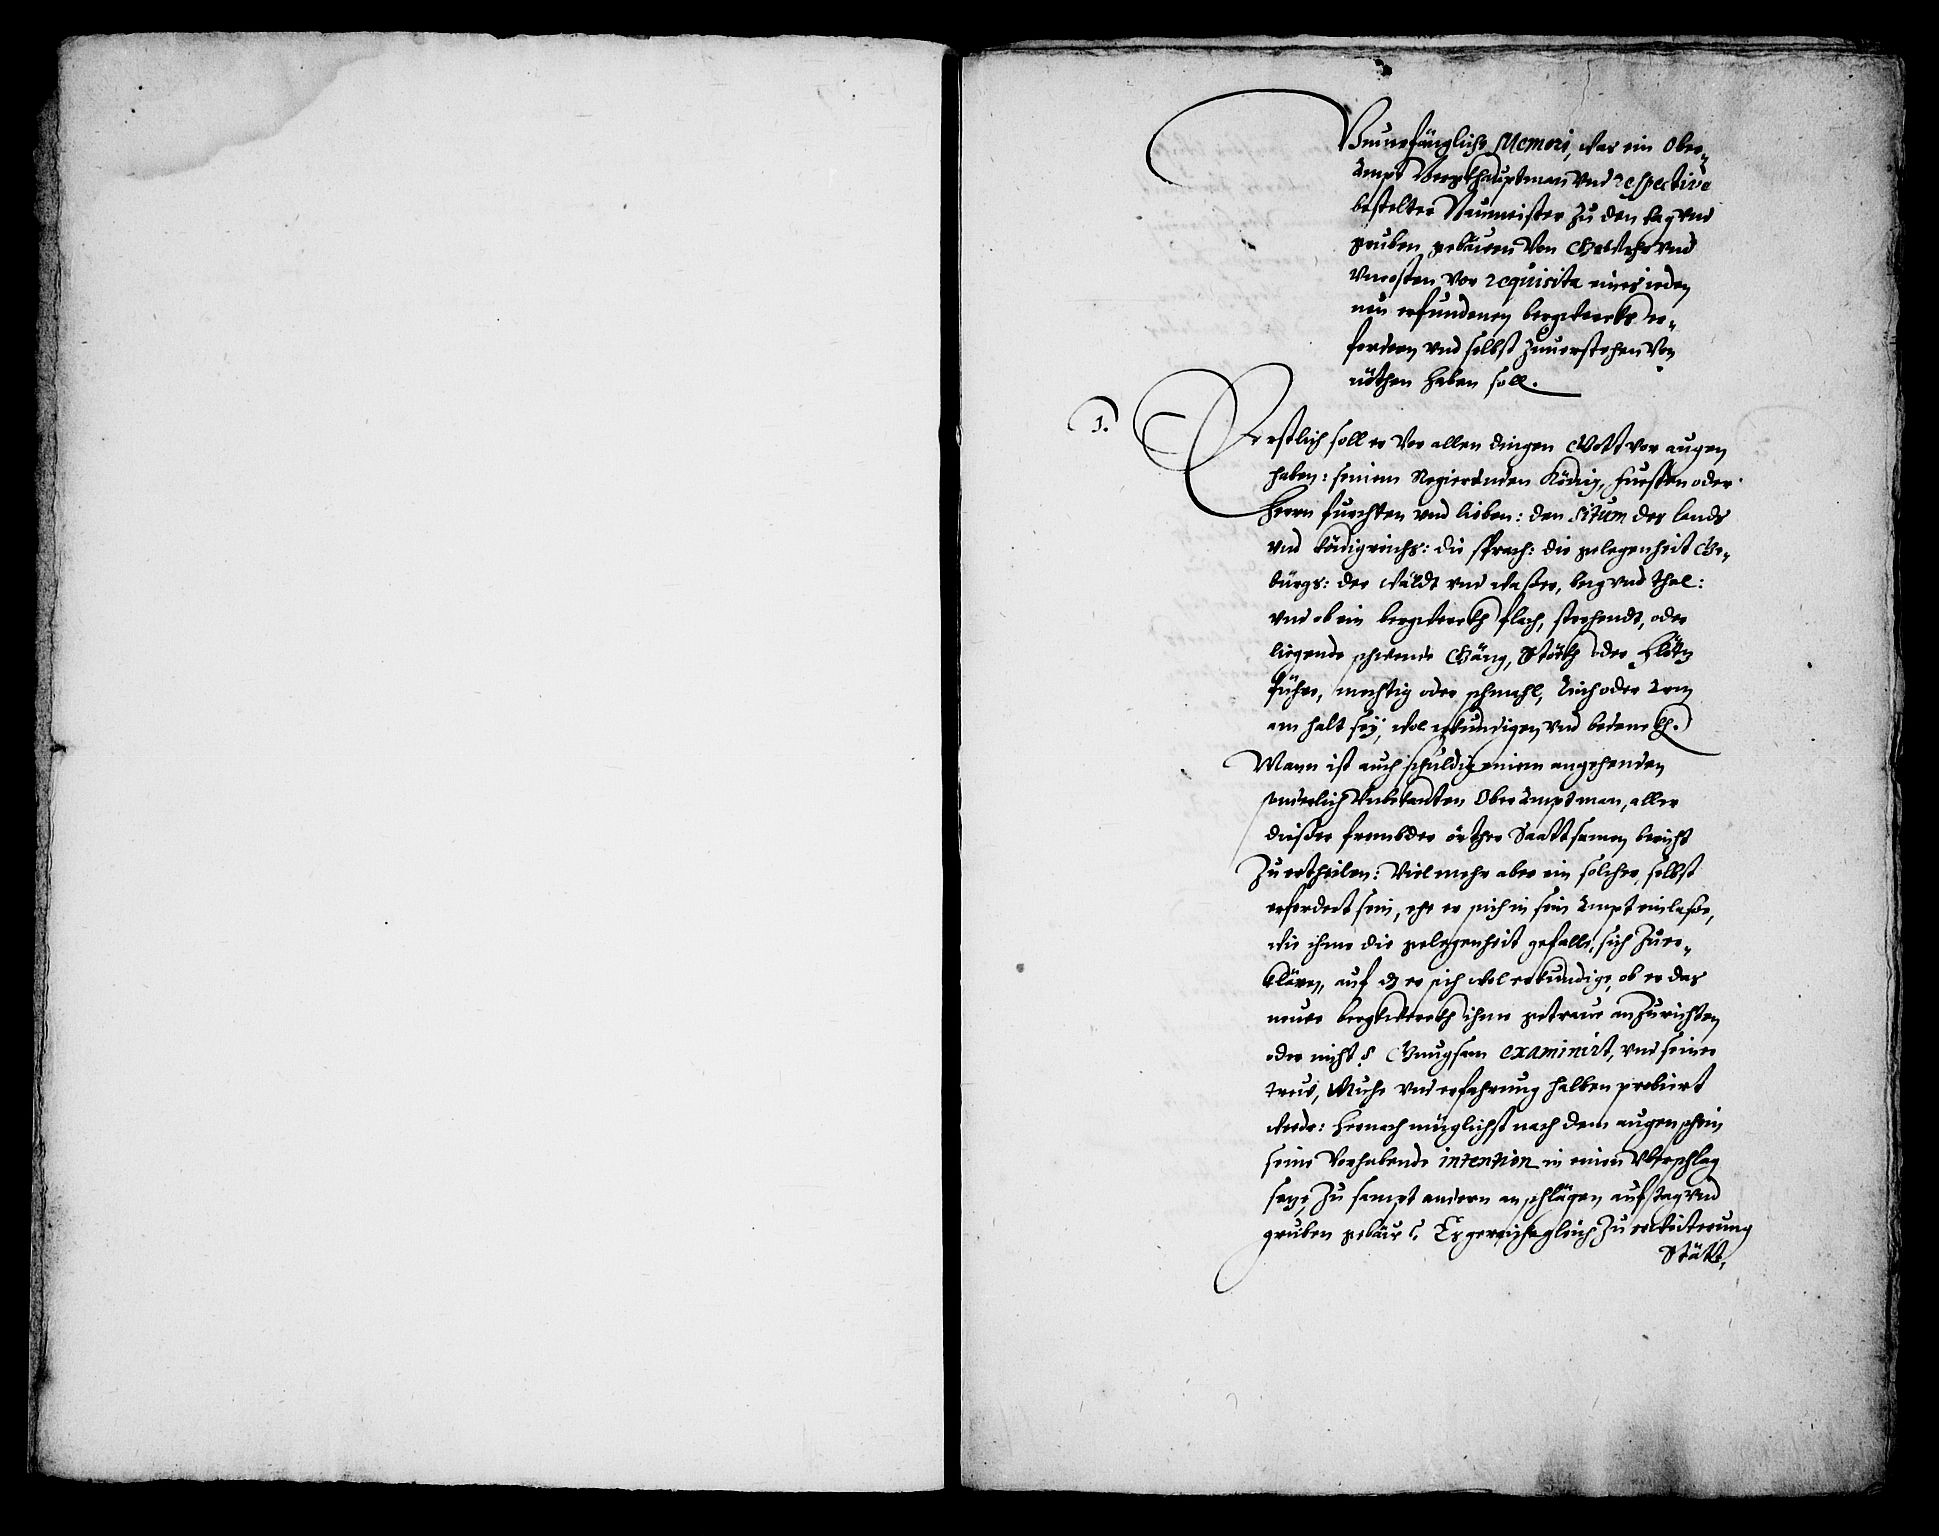 Vnuerfängliche Memori, was ein Ober„
Ampt Berghauptman vnd respective
bestelter Baumeister zu den tag vnd
gruben gebäuen von Gewehr vnd
vncosten vor requisita eines ieden
neu erfundenen bergwercks er„
fordern vnd selbst zuuerstehen von
nöthen haben soll.
1. Erstlich soll er vor allen dingen Gott vor augen
haben: seinem Regierenden König, Fursten oder
Herrn furchten vnd lieben: den situm des lands
vnd königreichs: die sprach: die gelegenheit Ge„
bürgs: der wäldt vnd wasser, berg vnd thal:
vnd ob ein bergwerckh flach, stehendt, oder
liegende schwende Gäng, Stöckh oder Flötz
führe, mechtig oder schmahl, Reich oder Arm
am halt sey, wol erkundigen vnd bedenckh.
Mann ist auch schuldig einem angehenden
sonderlich vnbekanten Ober Amptman, aller
dieser frembder örther Saattsamen bericht
zu ertheilen: Viel mehr aber ein solcher, selbst
erfordert sein, ehe er sich in sein Ampt einlasse,
wie ihme die gelegenheit gefalle, sich zu er„
klären, auf dz er sich wol erkundige, ob er das
neue bergkwerckh ihme getraue anzurichten
oder nicht? Gnugsam examinirt, vnd seiner
treu, Muhe vnd erfahrung halben probiert
werde: Hernach müglichst nach dem augenschein
seine vorhabende intention in einen vberschlag
seye, zu sampt andern anschlägen auf tag vnd
gruben gebäue Zu erweiterung
Stätt,